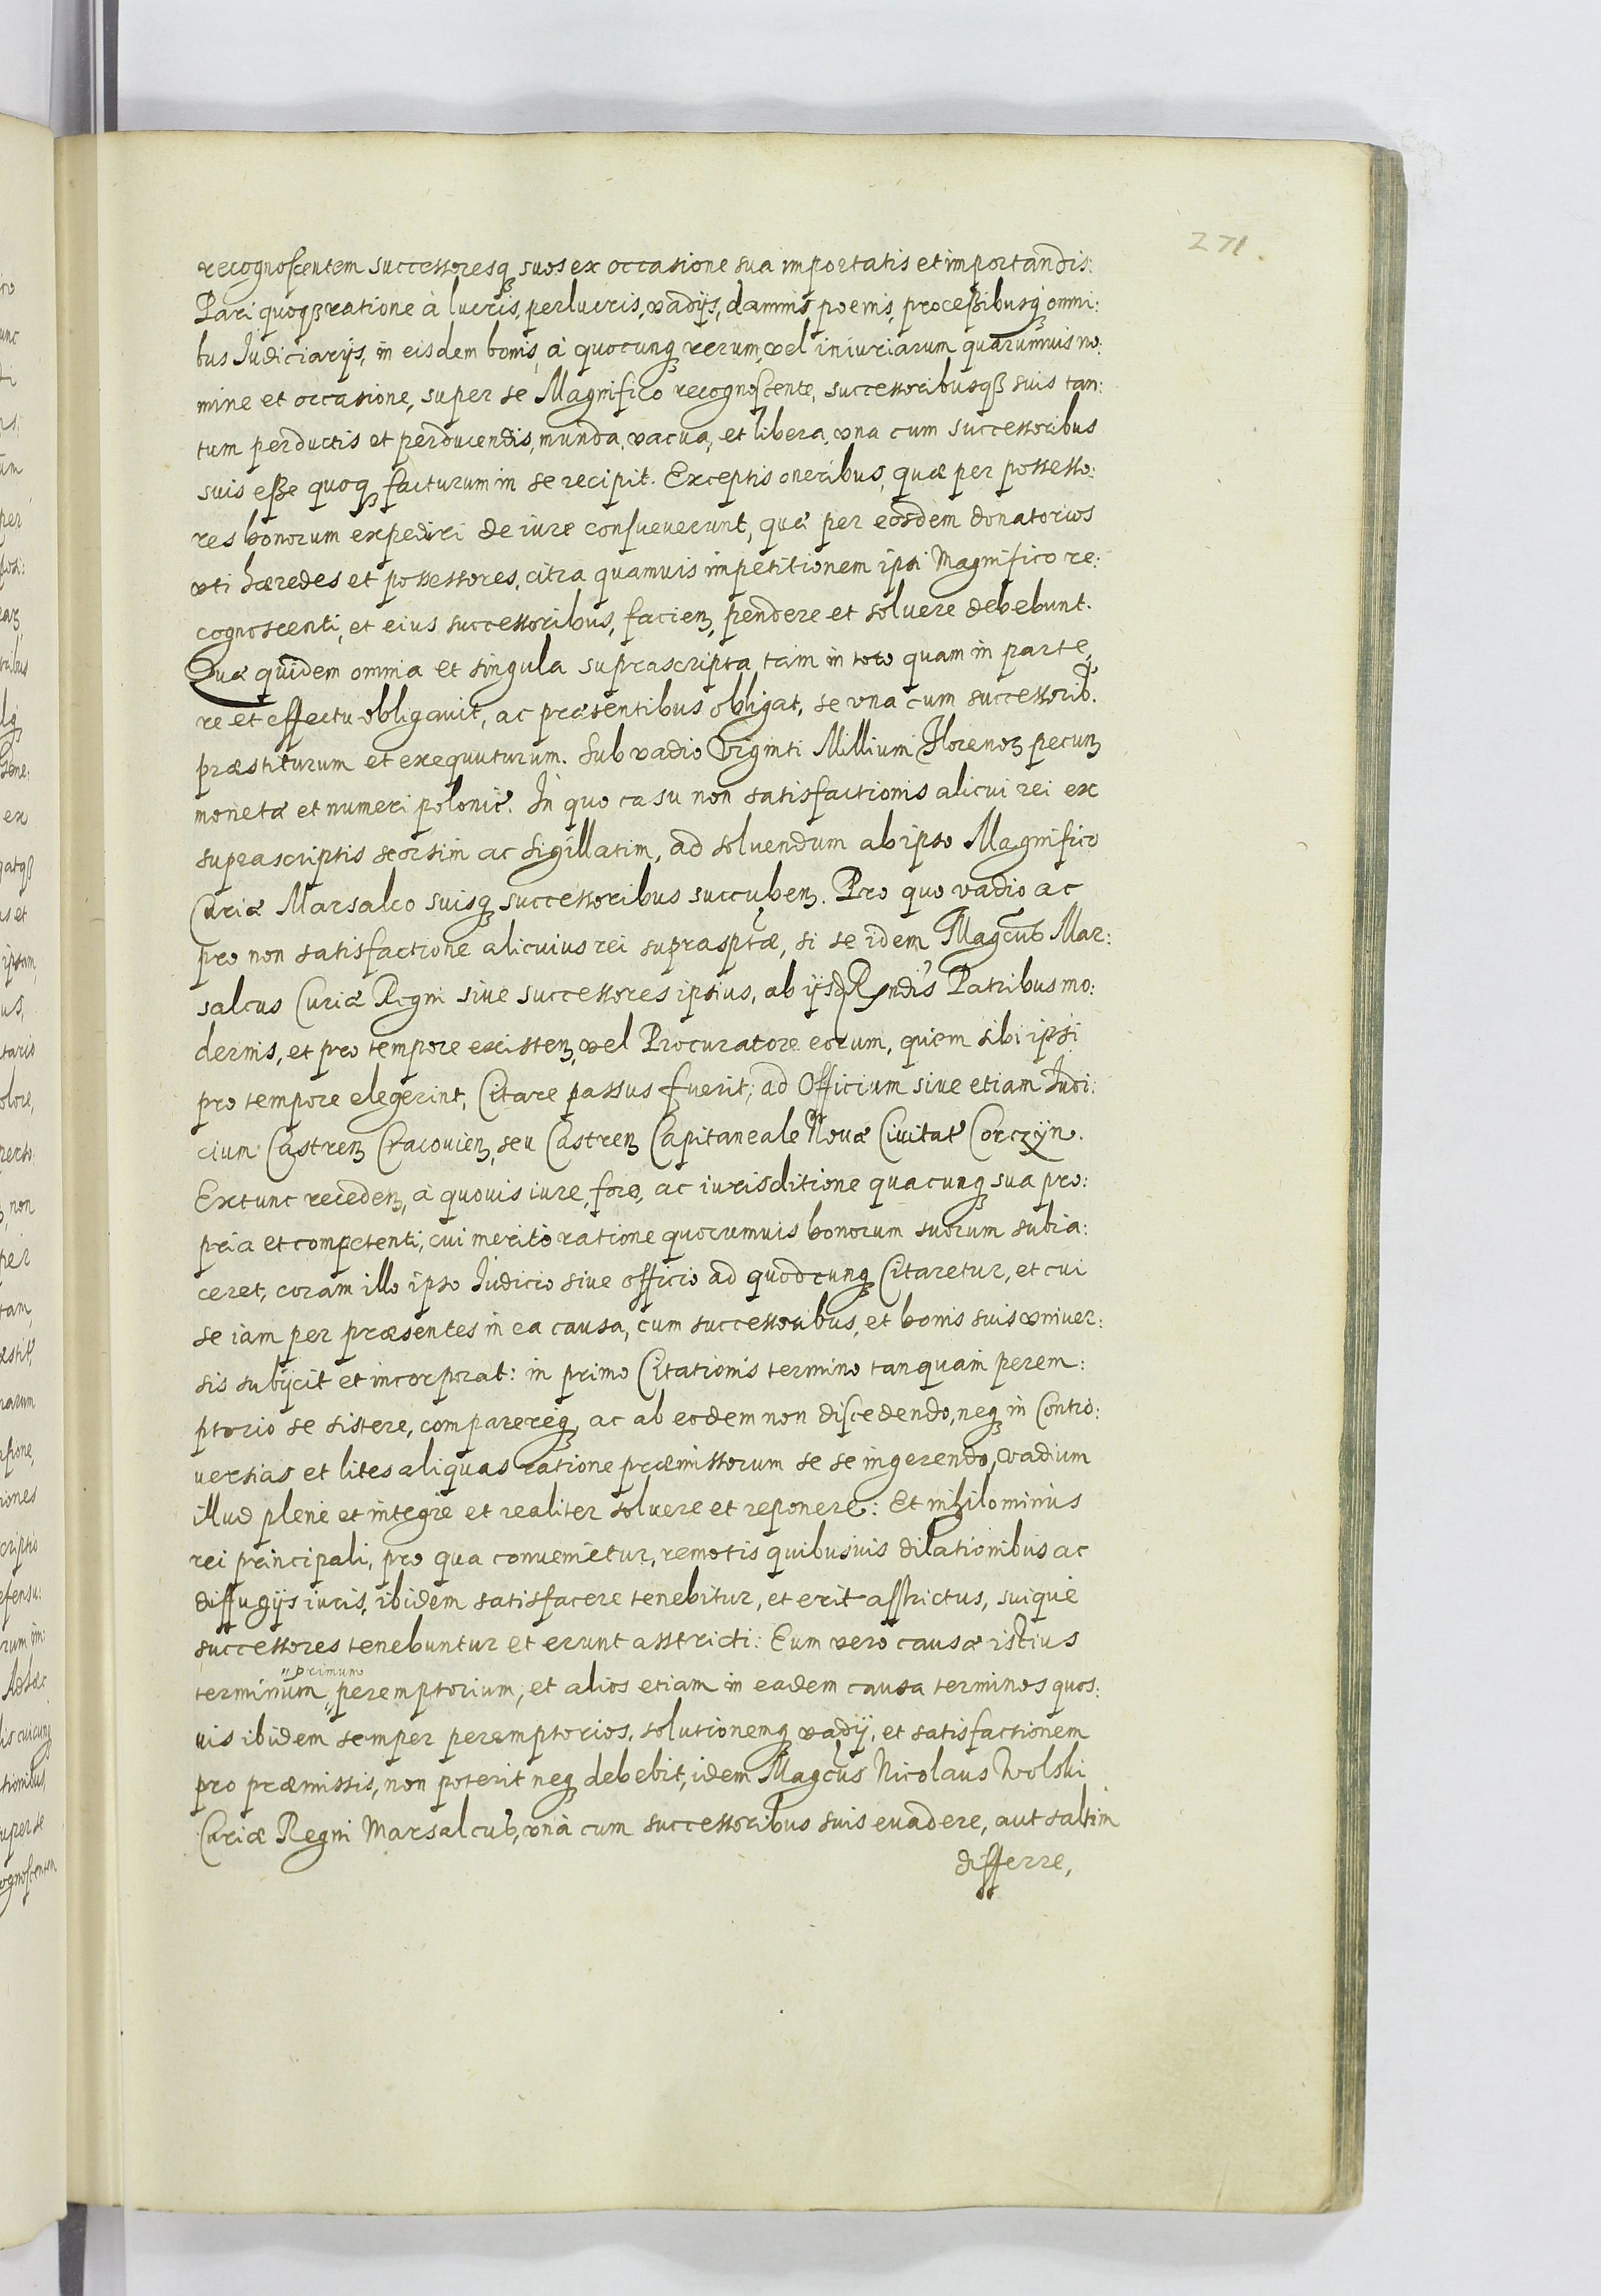 271.
recognoscentem successoresq3 suos ex occasione sua importatis et importandis:
Pari quoq3 ratione à lucris, perlucris, vadijs, damnis, poenis, processibusq3 omni:
bus Iudiciarijs, in eisdem bonis, à quocunq3 rerum, vel iniuriarum quarumuis no:
mine et occasione, super se Magnifico recognoscente, successoribusq3 suis tan:
tum perductis et perducendis, munda, vacua, et libera, vna cum successoribus
suis eße quoq3 facturum in se recipit. Exceptis oneribus, quæ per possesso:
res bonorum expediri de iure consueuerunt, quæ per eosdem donatorios
vti hæredes et possessores, citra quamuis impetitionem ipsi Magnifico re:
cognoscenti, et eius successoribus, facien3, pendere et soluere debebunt.
Quæ quidem omnia et singula suprascripta, tam in toto quam in parte,
re et effectu obligauit, ac præsentibus obligat, se vna cum successorib9.
præstiturum et exequuturum. Sub vadio Viginti Millium Floreno3 pecun3
monetæ et numeri polonic. In quo casu non satisfactionis alicui rei ex
suprascriptis seorsim ac sigillatim, ad soluendum ab ipso Magnifico
Curiæ Marsalco suisq3 successoribus succuben3. Pro quo vadio ac
pro non satisfactione alicuius rei suprasptæ, si se idem Magcus Mar:
salcus Curiæ Regni siue successores ipsius, ab ijsd Rndis Patribus mo:
dernis, et pro tempore existen3, vel Procuratore eorum, quem sibi ipsi
pro tempore elegerint, Citare passus fuerit; ad Officium siue etiam Iudi:
cium Castren3 Cracouien3, seu Castren3 Capitaneale Nouæ Ciuitat Corczyn.
Extunc receden3, à quouis iure, foro, ac iurisditione quacunq3 sua pro:
pria et competenti, cui meritò ratione quorumuis bonorum suorum subia:
ceret, coram illo ipso Iudicio siue officio ad quodcunq3 Citaretur, et cui
se iam per præsentes in ea causa, cum successoribus, et bonis suis vniuer:
sis subijcit et incorporat: in primo Citationis termino tanquam perem:
ptorio se sistere, comparereq3, ac ab eodem non discedendo, neq3 in Contro:
uersias et lites aliquas ratione præmissorum se se ingerendo, vadium
illud plenè et integrè et realiter soluere et reponere: Et nihilominus
rei principali, pro qua conuenietur, remotis quibusuis dilationibus ac
diffugijs iuris, ibidem satisfacere tenebitur, et erit astrictus, suique
successores tenebuntur et erunt asstricti: Eum vero causæ istius
"primum
terminum," peremptorium, et alios etiam in eadem causa terminos quos:
uis ibidem semper peremptorios, solutionemq3 vadij, et satisfactionem
pro præmissis, non poterit neq3 debebit, idem Magcus Nicolaus Wolski
Curiæ Regni Marsalcus, vnà cum successoribus suis euadere, aut saltim
differre,